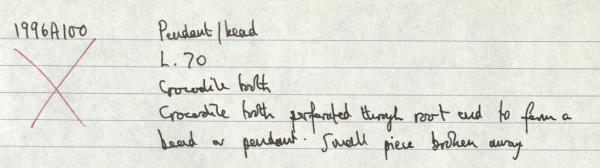 1996A100 Pendant/bead
L. 70
Crocodile tooth
Crocodile tooth perforated through root end to form a
bead or pendant. Small piece broken away